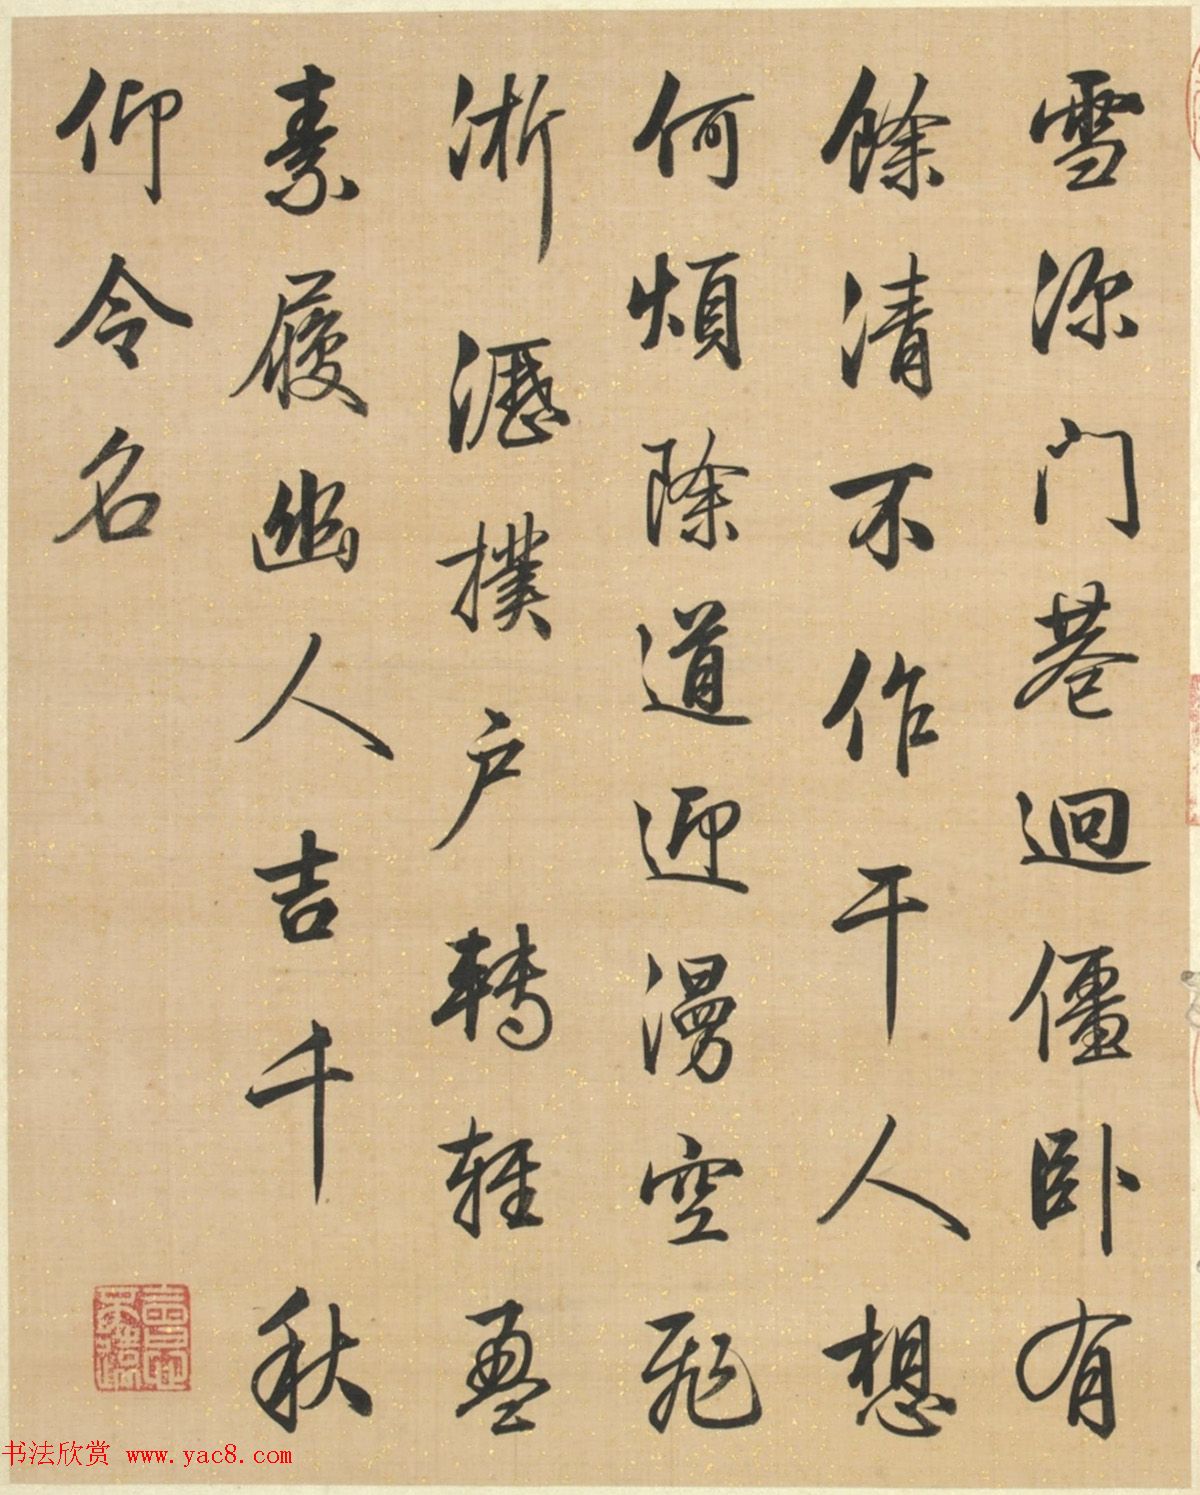 雪深门巷迥僵卧有
餘清不作干人想
何煩除道迎漫空飛
淅瀝撲户轉輕盈
素履幽人吉千秋
仰令名
书法欣赏 www.yac8.com